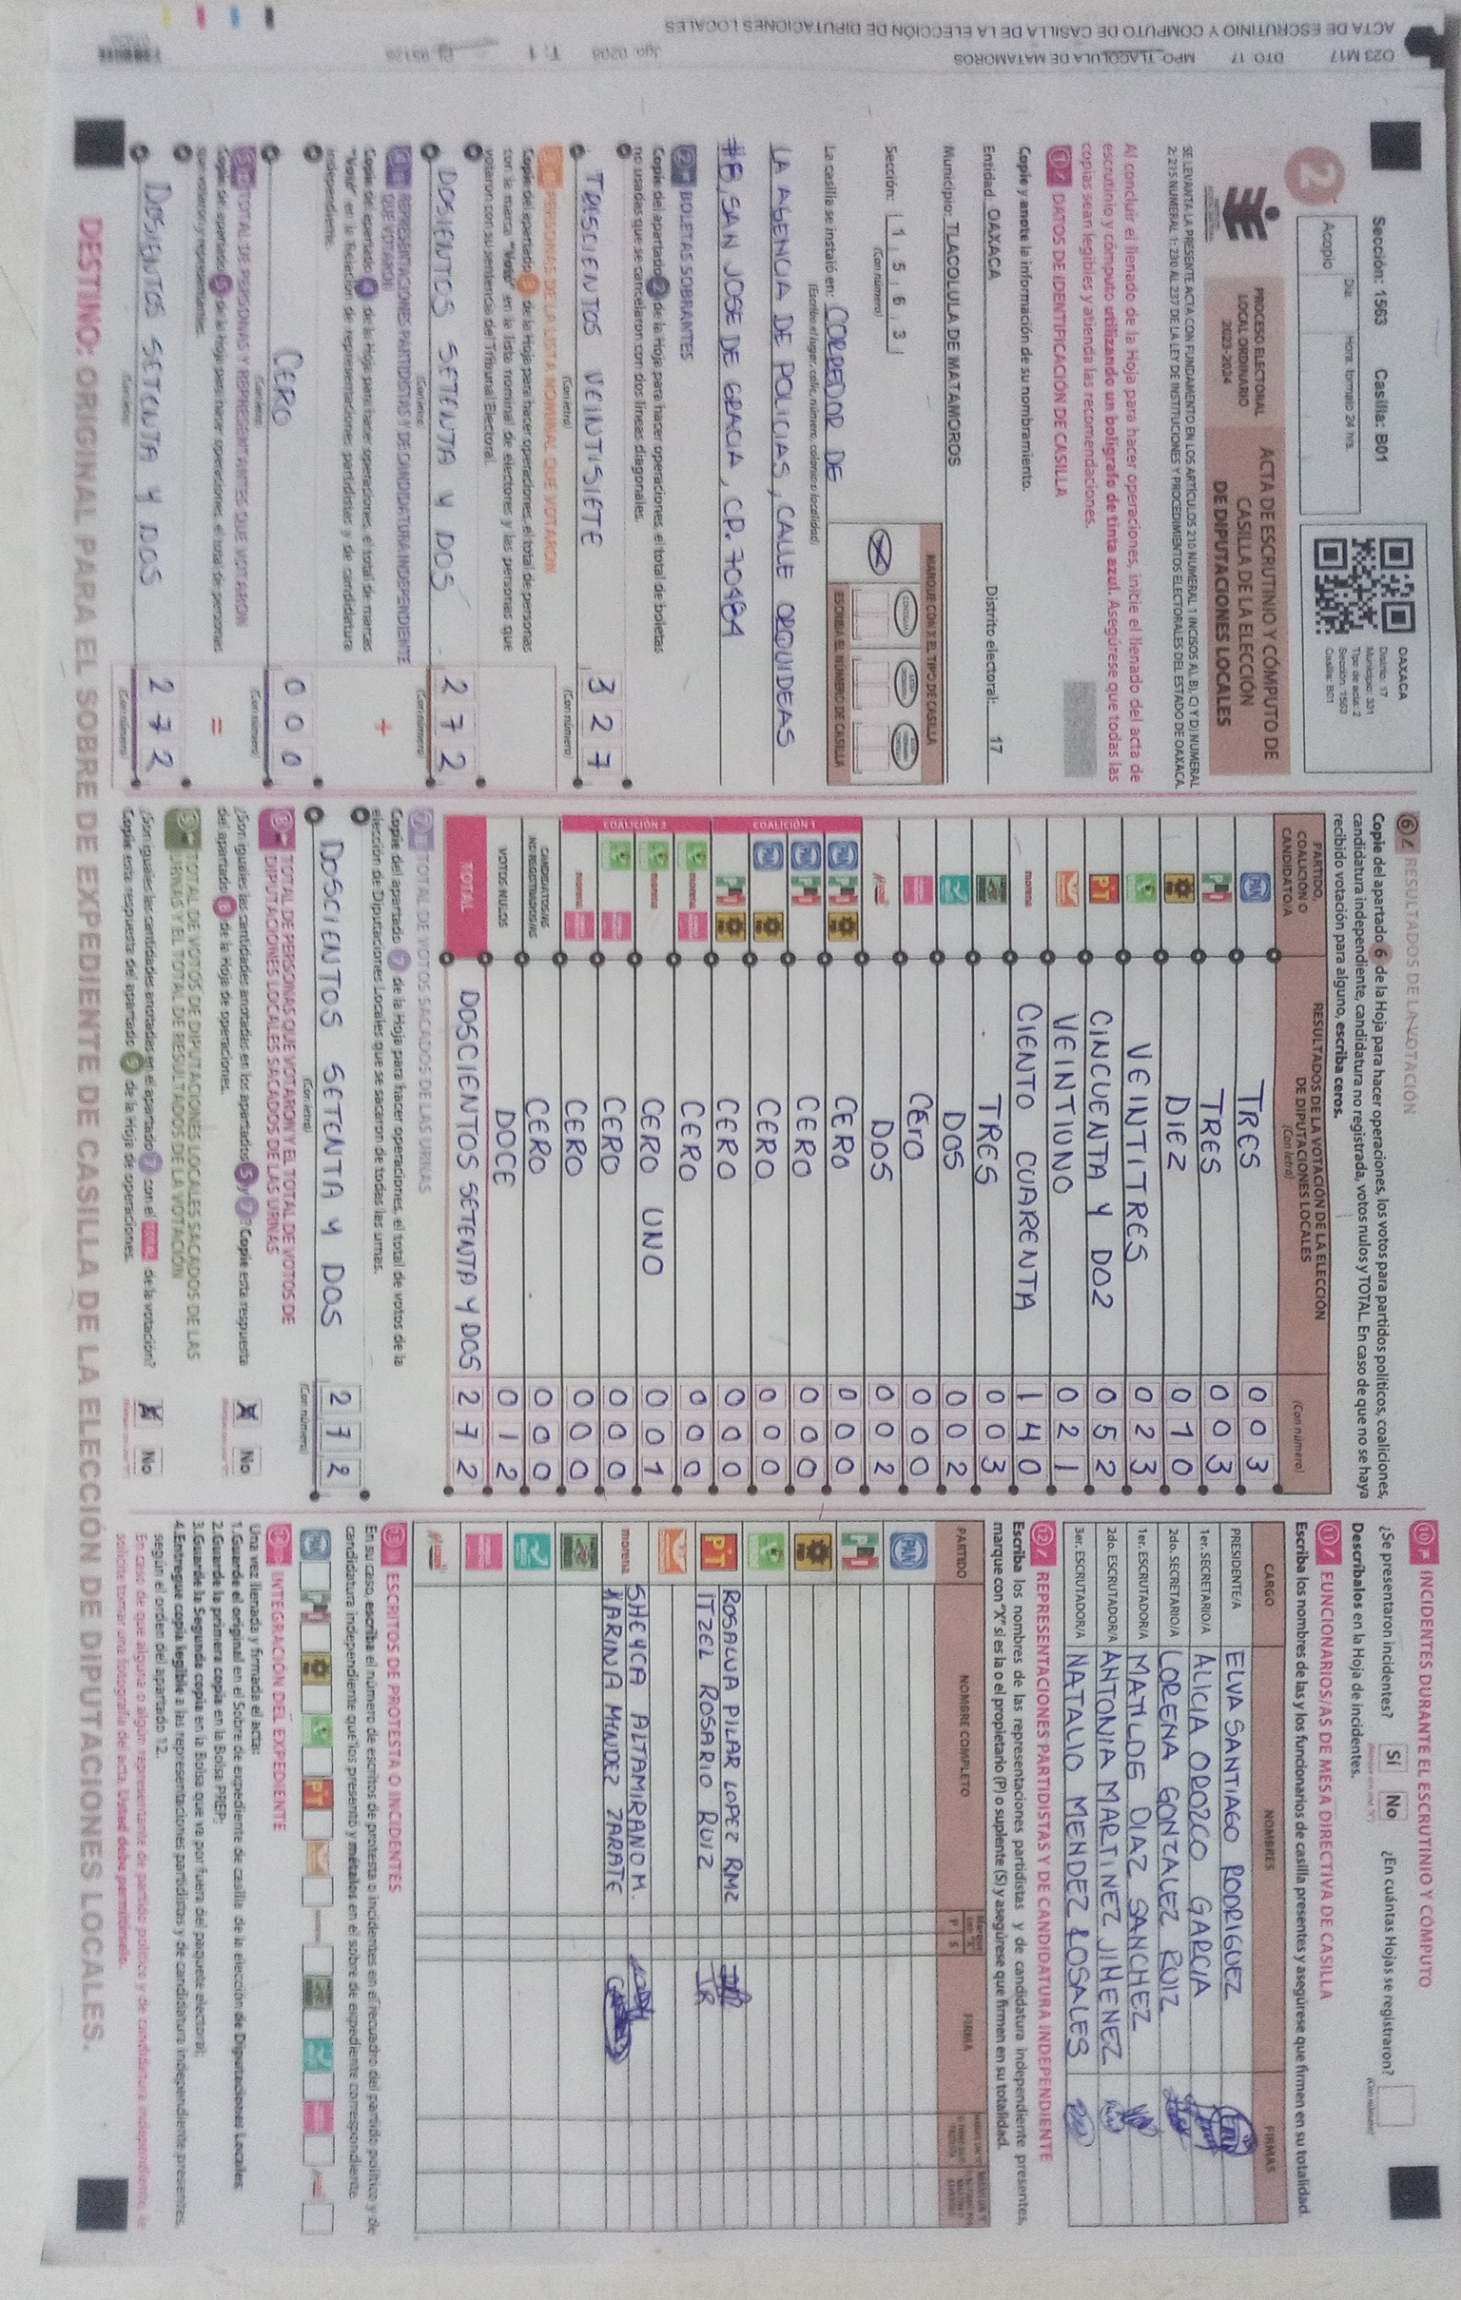 Sección: 1563 Casilla: B01
Día: Hora: formato 24 hrs.
Acopio
OAXACA
Distrito: 17
Municipio: 331
Tipo de acta: 2
Sección: 1563
Casilla: B01
2
PROCESO ELECTORAL
LOCAL ORDINARIO
2023-2024
ACTA DE ESCRUTINIO Y CÓMPUTO DE
CASILLA DE LA ELECCIÓN
DE DIPUTACIONES LOCALES
SE LEVANTA LA PRESENTE ACTA CON FUNDAMENTO EN LOS ARTÍCULOS 210 NUMERAL 1 INCISOS A), B), C) Y D) NUMERAL
2; 215 NUMERAL 1; 230 AL 237 DE LA LEY DE INSTITUCIONES Y PROCEDIMIENTOS ELECTORALES DEL ESTADO DE OAXACA.
Al concluir el llenado de la Hoja para hacer operaciones, inicie el llenado del acta de
escrutinio y cómputo utilizando un bolígrafo de tinta azul. Asegúrese que todas las
copias sean legibles y atienda las recomendaciones.
1 DATOS DE IDENTIFICACIÓN DE CASILLA
Copie y anote la información de su nombramiento.
Entidad: OAXACA Distrito electoral: 17
Municipio: TLACOLULA DE MATAMOROS
Sección: 1 5 6 3
(Con número)
MARQUE CON X EL TIPO DE CASILLA
ESCRIBA EL NÚMERO DE CASILLA
La casilla se instaló en: CORREDOR DE
(Escriba el lugar, calle, número, colonia o localidad)
LA AGENCIA DE POLICIAS, CALLE ORQUIDEAS
#8, SAN JOSE DE GRACIA, CP. 70484
2 BOLETAS SOBRANTES
Copie del apartado 2 de la Hoja para hacer operaciones, el total de boletas
no usadas que se cancelaron con dos líneas diagonales.
TRISCIENTOS VEINTISIETE 3 2 7
(Con letra) (Con número)
3 PERSONAS DE LA LISTA NOMINAL QUE VOTARON
Copie del apartado 3 de la Hoja para hacer operaciones, el total de personas
con la marca "Votó" en la lista nominal de electores y las personas que
votaron con su sentencia del Tribunal Electoral.
DOSIENTOS SETENTA Y DOS 2 7 2
(Con letra) (Con número)
4 REPRESENTACIONES PARTIDISTAS Y DE CANDIDATURA INDEPENDIENTE
QUE VOTARON
Copie del apartado 4 de la Hoja para hacer operaciones, el total de marcas
"Votó" en la Relación de representaciones partidistas y de candidatura
independiente.
+
CERO 0 0 0
(Con letra) (Con número)
5 TOTAL DE PERSONAS Y REPRESENTANTES QUE VOTARON
Copie del apartado 5 de la Hoja para hacer operaciones, el total de personas
que votaron y representantes.
=
DOSIENTOS SETENTA Y DOS 2 7 2
(Con letra) (Con número)
6 RESULTADOS DE LA VOTACIÓN
Copie del apartado 6 de la Hoja para hacer operaciones, los votos para partidos políticos, coaliciones,
candidatura independiente, candidatura no registrada, votos nulos y TOTAL. En caso de que no se haya
recibido votación para alguno, escriba ceros.
PARTIDO, COALICIÓN O CANDIDATO/A
RESULTADOS DE LA VOTACIÓN DE LA ELECCIÓN DE DIPUTACIONES LOCALES
(Con letra) (Con número)
PAN TRES 0 0 3
PRI TRES 0 0 3
PRD DIEZ 0 1 0
VEINTITRES 0 2 3
PT CINCUENTA Y DO2 0 5 2
VEINTIUNO 0 2 1
morena CIENTO CUARENTA 1 4 0
TRES 0 0 3
DOS 0 0 2
CERO 0 0 0
DOS 0 0 2
COALICIÓN 1
CERO 0 0 0
CERO 0 0 0
CERO 0 0 0
CERO 0 0 0
COALICIÓN 2
CERO 0 0 0
CERO UNO 0 0 1
CERO 0 0 0
CERO 0 0 0
CANDIDATOS/AS NO REGISTRADOS/AS CERO 0 0 0
VOTOS NULOS DOCE 0 1 2
TOTAL DOSCIENTOS SETENTA Y DOS 2 7 2
7 TOTAL DE VOTOS SACADOS DE LAS URNAS
Copie del apartado 7 de la Hoja para hacer operaciones, el total de votos de la
elección de Diputaciones Locales que se sacaron de todas las urnas.
DOSCIENTOS SETENTA Y DOS 2 7 2
(Con letra) (Con número)
8 TOTAL DE PERSONAS QUE VOTARON Y EL TOTAL DE VOTOS DE
DIPUTACIONES LOCALES SACADOS DE LAS URNAS
¿Son iguales las cantidades anotadas en los apartados 5 y 7? Copie esta respuesta
del apartado 8 de la Hoja de operaciones.
X No
9 TOTAL DE VOTOS DE DIPUTACIONES LOCALES SACADOS DE LAS
URNAS Y EL TOTAL DE RESULTADOS DE LA VOTACIÓN
¿Son iguales las cantidades anotadas en el apartado 7 con el TOTAL de la votación?
Copie esta respuesta del apartado 9 de la Hoja de operaciones.
X No
10 INCIDENTES DURANTE EL ESCRUTINIO Y CÓMPUTO
¿Se presentaron incidentes? Sí No ¿En cuántas Hojas se registraron?
(Con número)
Descríbalos en la Hoja de incidentes.
11 FUNCIONARIOS/AS DE MESA DIRECTIVA DE CASILLA
Escriba los nombres de las y los funcionarios de casilla presentes y asegúrese que firmen en su totalidad.
CARGO NOMBRES FIRMAS
PRESIDENTE/A ELVA SANTIAGO RODRIGUEZ
1er. SECRETARIO/A ALICIA OROZCO GARCIA
2do. SECRETARIO/A LORENA GONZALEZ RUIZ
1er. ESCRUTADOR/A MATILDE DIAZ SANCHEZ
2do. ESCRUTADOR/A ANTONIA MARTINEZ JIMENEZ
3er. ESCRUTADOR/A NATALIO MENDEZ ROSALES
12 REPRESENTACIONES PARTIDISTAS Y DE CANDIDATURA INDEPENDIENTE
Escriba los nombres de las representaciones partidistas y de candidatura independiente presentes,
marque con "X" si es la o el propietario (P) o suplente (S) y asegúrese que firmen en su totalidad.
PARTIDO NOMBRE COMPLETO P S FIRMA
PAN
PRI
PRD
PT ROSALVA PILAR LOPEZ RMZ
ITZEL ROSARIO RUIZ
morena SHEYCA ALTAMIRANO M.
KARINA MENDEZ ZARATE
13 ESCRITOS DE PROTESTA O INCIDENTES
En su caso, escriba el número de escritos de protesta o incidentes en el recuadro del partido político y de
candidatura independiente que los presentó y métalos en el sobre de expediente correspondiente.
14 INTEGRACIÓN DEL EXPEDIENTE
Una vez llenada y firmada el acta:
1.Guarde el original en el Sobre de expediente de casilla de la elección de Diputaciones Locales;
2.Guarde la primera copia en la Bolsa PREP;
3.Guarde la Segunda copia en la Bolsa que va por fuera del paquete electoral;
4.Entregue copia legible a las representaciones partidistas y de candidatura independiente presentes,
según el orden del apartado 12.
En caso de que alguna o algún representante de partido político y de candidatura independiente, le
solicite tomar una fotografía del acta, Usted debe permitírselo.
DESTINO: ORIGINAL PARA EL SOBRE DE EXPEDIENTE DE CASILLA DE LA ELECCIÓN DE DIPUTACIONES LOCALES.
O23 M17 DTO. 17 MPO. TLACOLULA DE MATAMOROS
ACTA DE ESCRUTINIO Y CÓMPUTO DE CASILLA DE LA ELECCIÓN DE DIPUTACIONES LOCALES